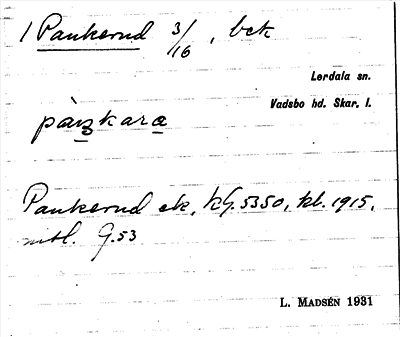 1 Pankerud 3/16, bek
Lerdala sn.
Vadsbo hd. Skar. l.
pànkara
Pankerud ek, KG.5350, kl. 1915.
mtl. J.53
L. MADSÉN 1931